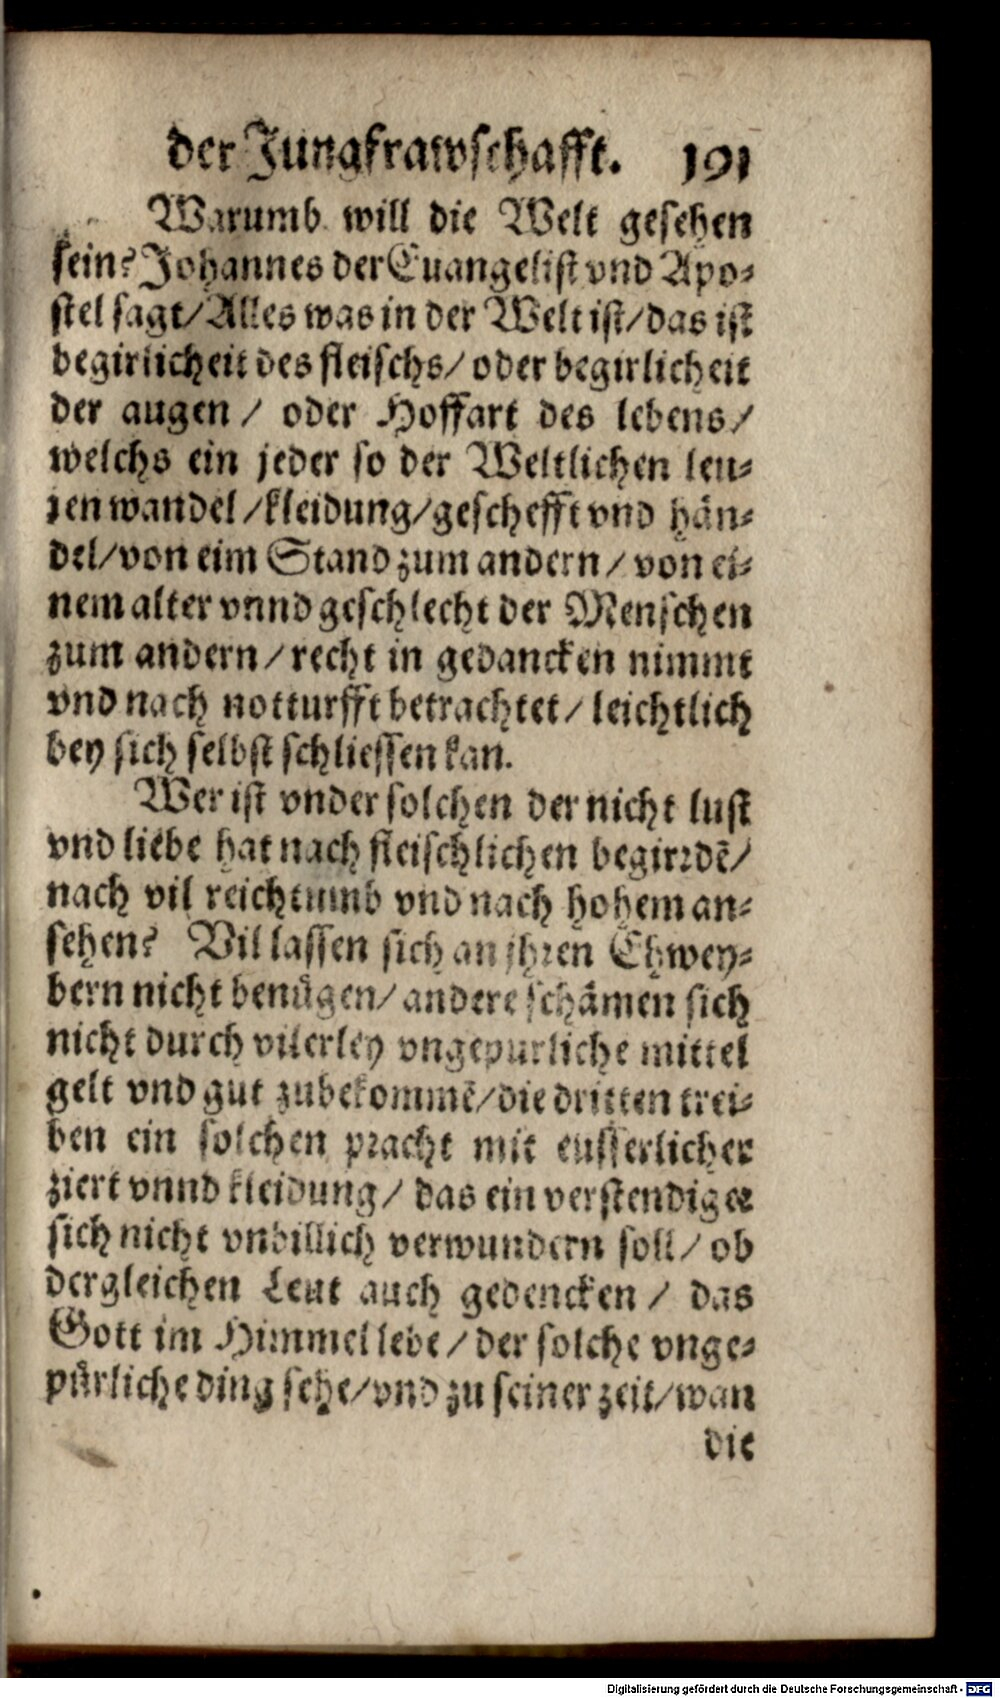 der Jungfrawschafft. 191
Warumb will die Welt gesehen
sein? Johannes der Euangelist vnd Apo-
stel sagt/ Alles was in der Welt ist/ das ist
begirlicheit des fleischs/ oder begirlicheit
der augen / oder Hoffart des lebens/
welchs ein jeder so der Weltlichen leu-
ten wandel/ kleidung/ geschefft vnd hän-
del/ von eim Stand zum andern / von ei-
nem alter vnnd geschlecht der Menschen
zum andern / recht in gedancken nimmt
vnd nach notturfft betrachtet / leichtlich
bey sich selbst schliessen kan.
Wer ist vnder solchen der nicht lust
vnd liebe hat nach fleischlichen begirrdē/
nach vil reichtumb vnd nach hohem an-
sehen? Vil lassen sich an jhren Ehwey-
bern nicht benügen/ andere schämen sich
nicht durch vilerley vngepurliche mittel
gelt vnd gut zubekommē/ die dritten trei-
ben ein solchen pracht mit eusserlicher
ziert vnnd kleidung/ das ein verstendiger
sich nicht vnbillich verwundern soll / ob
dergleichen Leut auch gedencken / das
Gott im Himmel lebe / der solche vnge-
pürliche ding sehe/ vnd zu seiner zeit/ wan
die
Digitalisierung gefördert durch die Deutsche Forschungsgemeinschaft - DFG